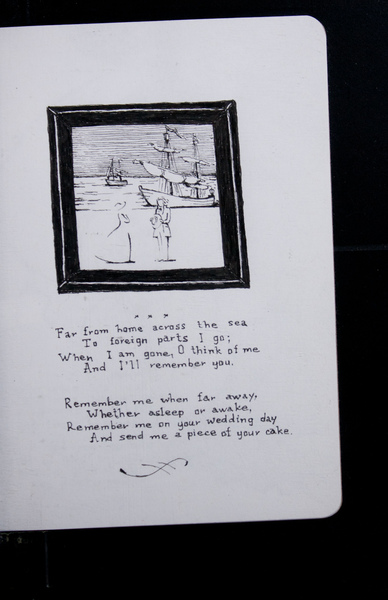 Far from home across the sea
To foreign parts I go;
When I am gone, O think of me
And I'll remember you.
Remember me when far away,
Whether asleep or awake,
Remember me on your wedding day
And send me a piece of your cake.